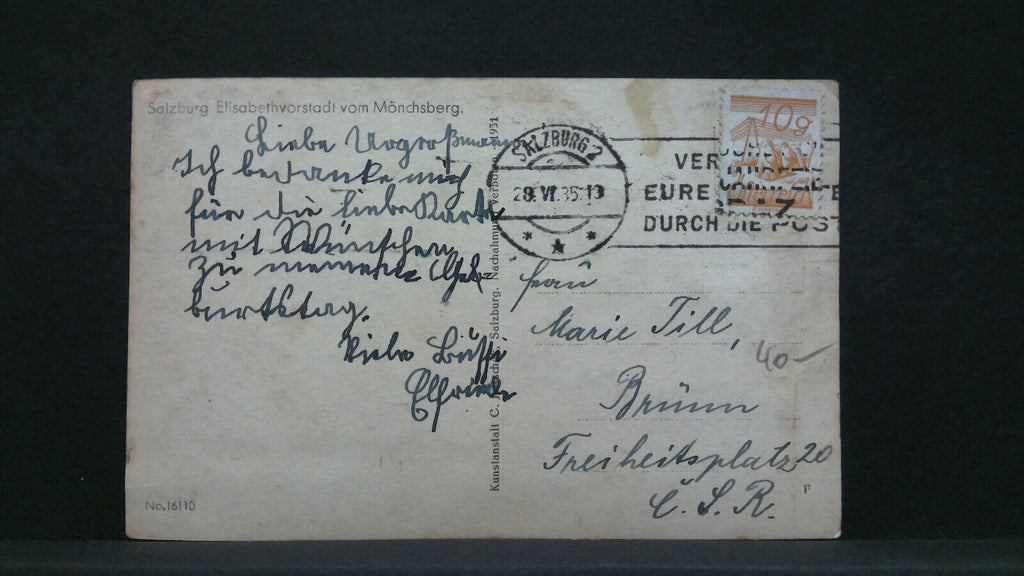 Salzburg Elisabethvorstadt vom Mönchsberg.
Liebe Urgroßmama
Ich bedanke mich
für die liebe Karte
mit Wünschen
zu meinem Ge=
burtstag.
Viele Bussi
Elfriede
No. 16110
Kunstanstalt C. Salzburg. Nachahmung verboten 1931
SALZBURG 2
28. VI. 35
10g
EURE
DURCH DIE POST
Frau
Marie Till,
40-
Brünn
Freiheitsplatz 20
Č. S. R.
F